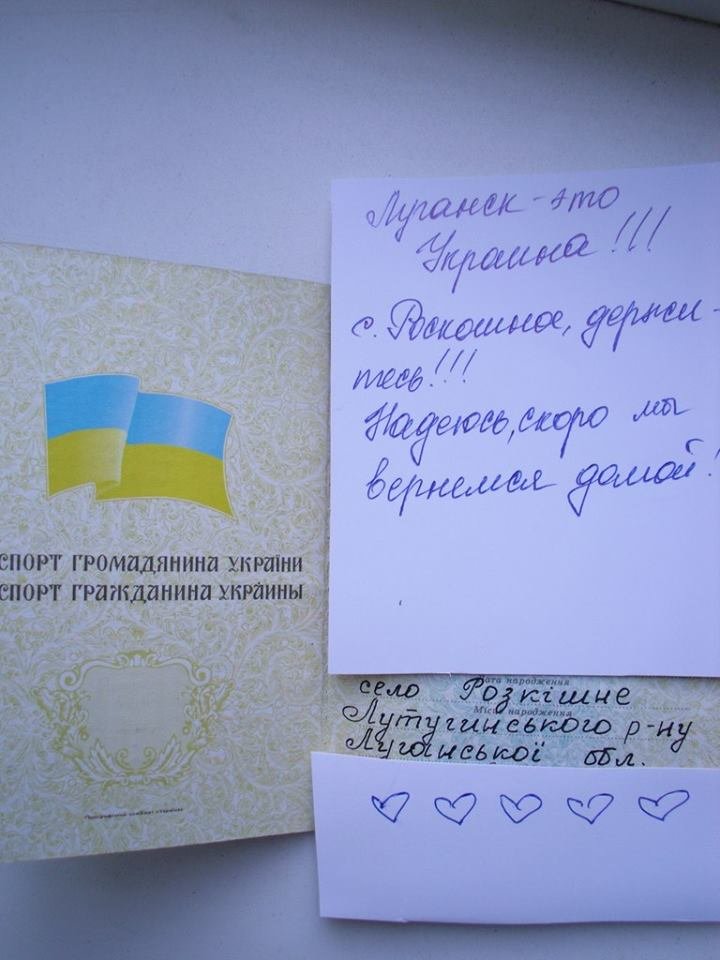 Луганск - это
Украина!!!
с. Роскошное, держи-
тесь!!!
Надеюсь, скоро мы
вернемся домой!
СПОРТ ГРОМАДЯНИНА УКРАЇНИ
СПОРТ ГРАЖДАНИНА УКРАИНЫ
ата народження
село Розкішне
Місце народження
Лутугинського р-ну
Луганської обл.